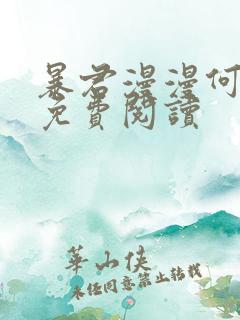 暴君漫漫何
免費閱讀
華山俠
未经同意禁止转载